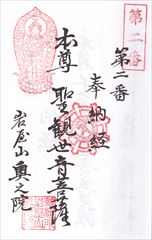 第二番
第二番
奉納経
本尊 聖観世音菩薩
岩屋山 奥之院